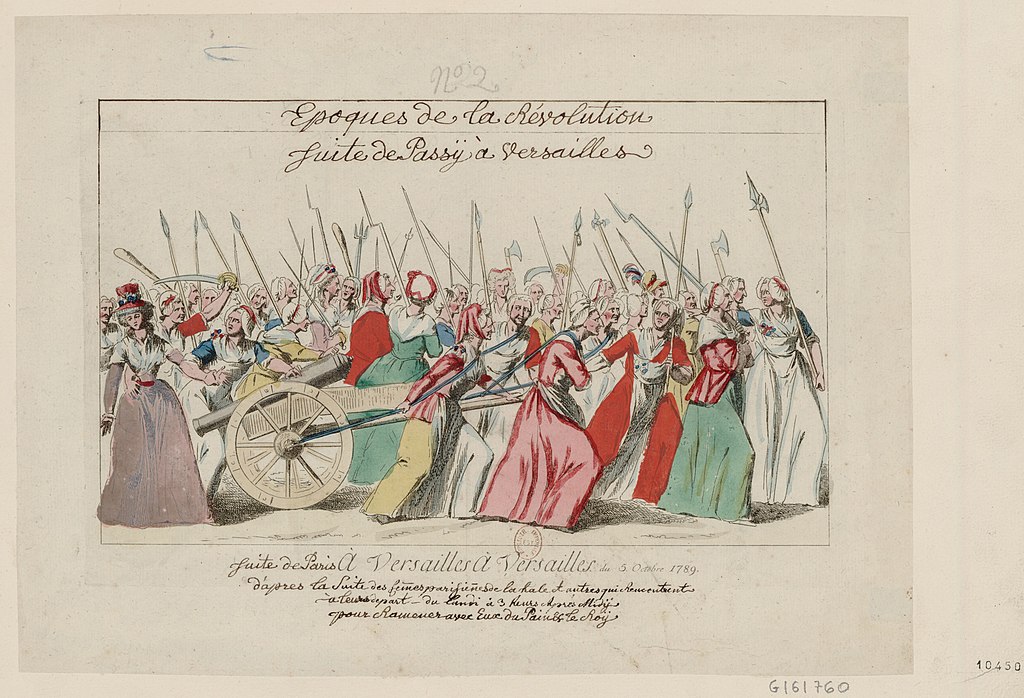 No. 2
Epoques de la Révolution
Suite de Passÿ à Versailles
Suite de Paris À Versailles À Versailles du 5 Octobre 1789.
d'apres la Suite des femes parisiènes de la hale et autres qui Rencontrent
à leurs depart du lundi à 3 heurs Apres Midÿ
pour Ramener avec Eux du Pain et le Roÿ
G161760
10450